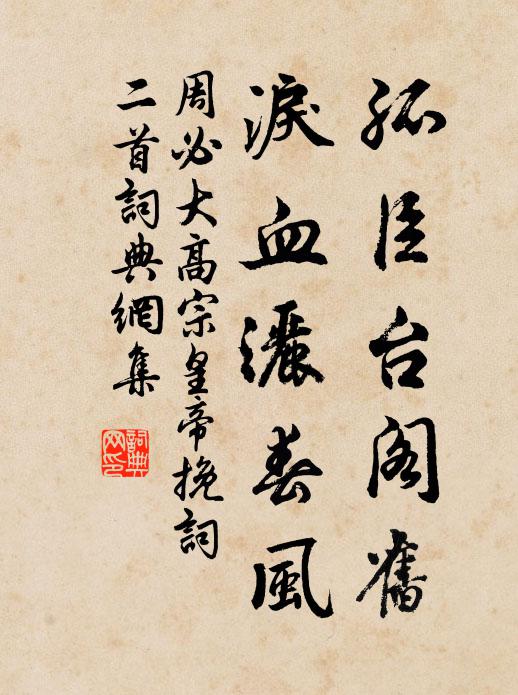 孤臣台阁舊
淚血灑春風
周必大高宗皇帝挽詞
二首詞典網集
詞典网印